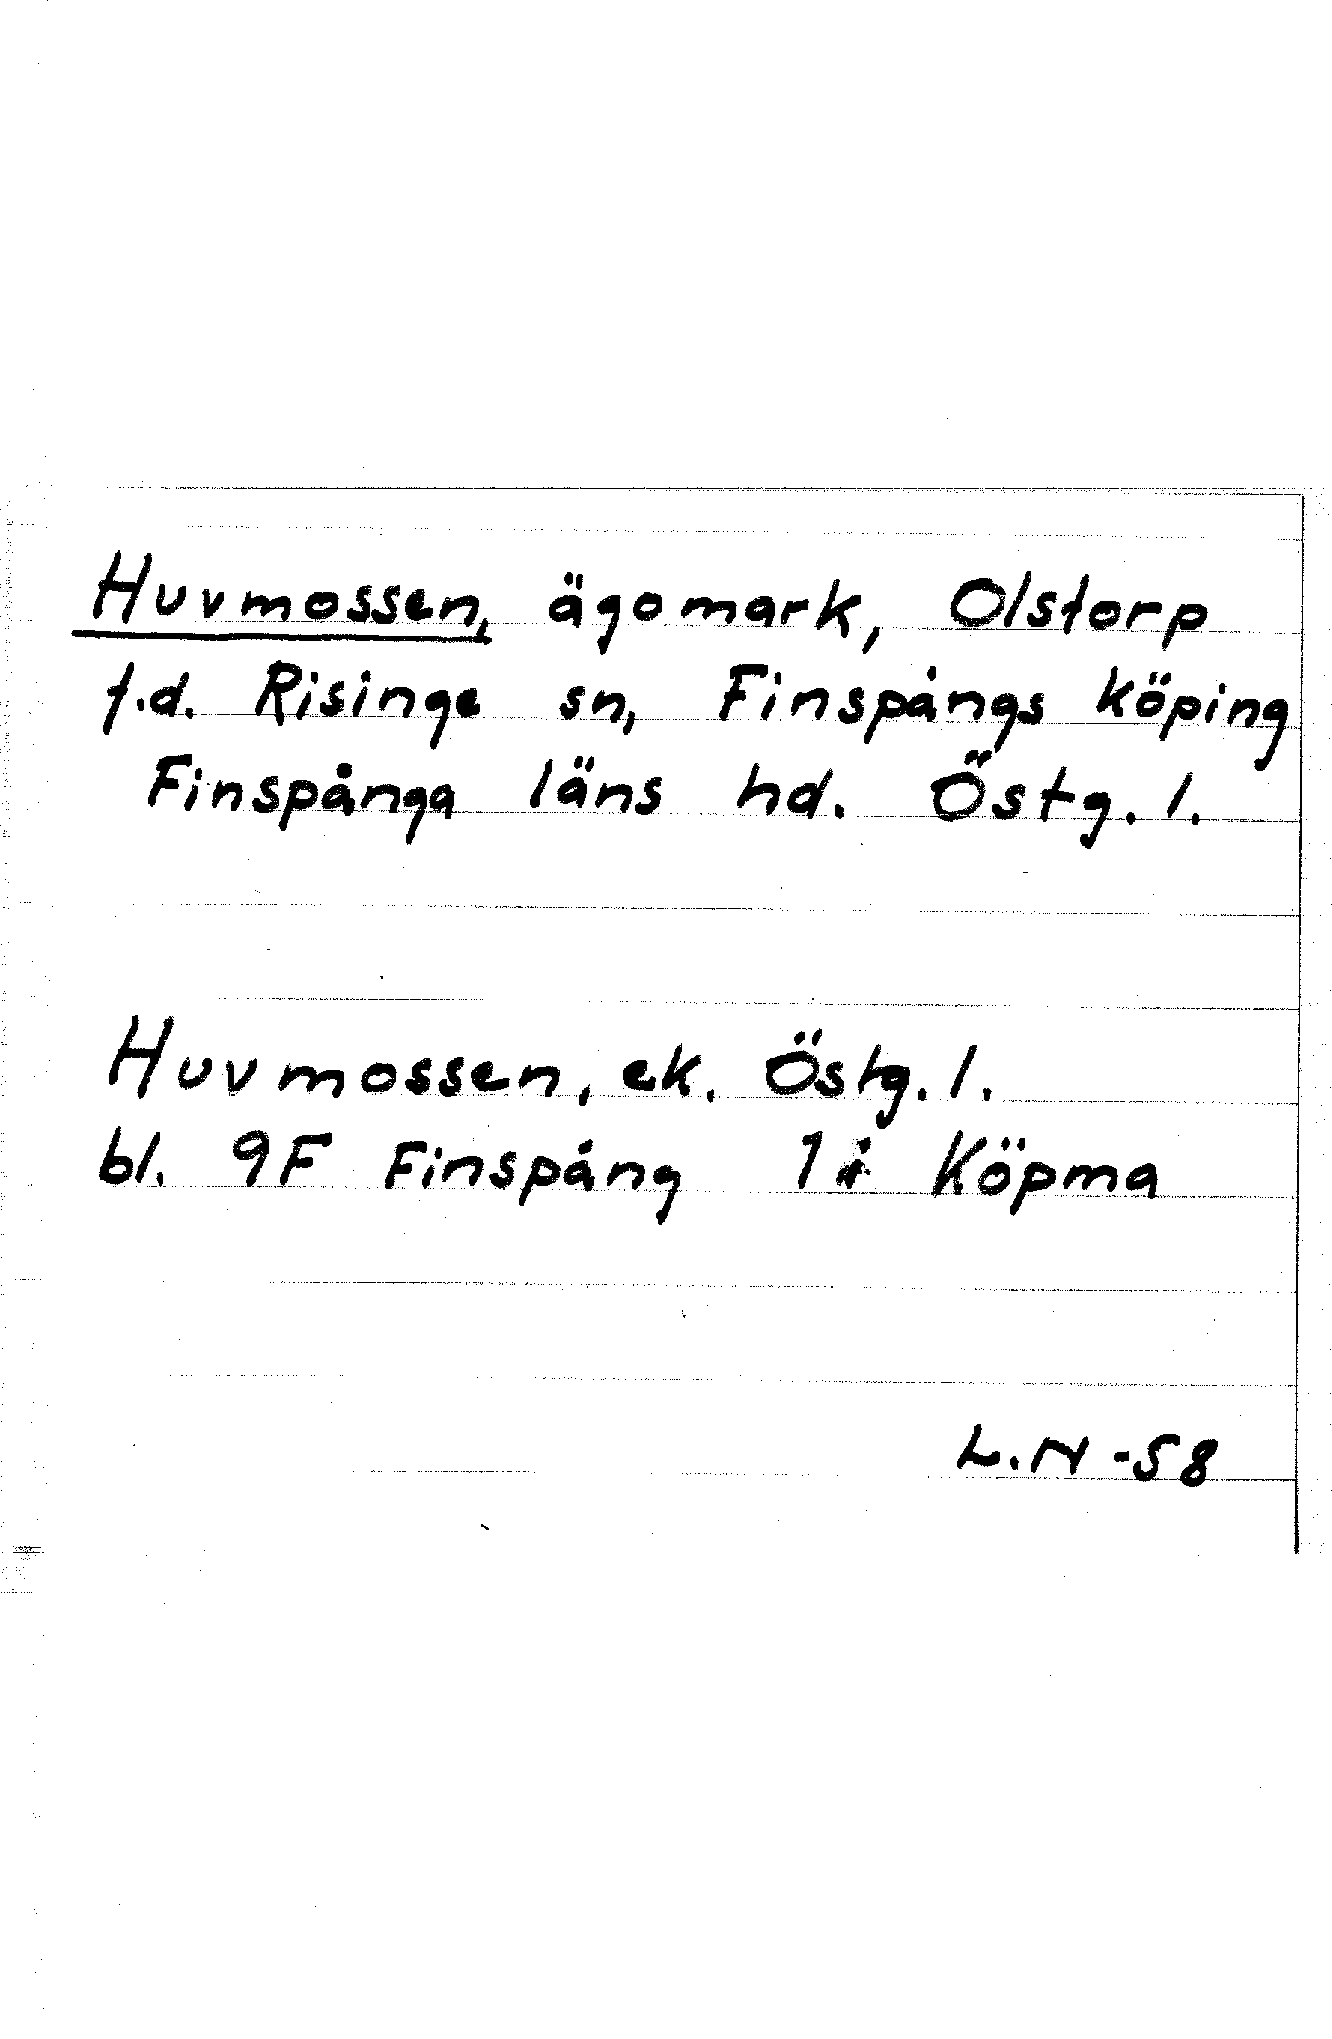 Huvmossen, ägomark, Olstorp
f.d. Risinge sn, Finspångs köping
Finspånga läns hd. Östg. l.
Huvmossen, ek. Östg. l.
bl. 9F Finspång 1 i Köpma
L.N -58